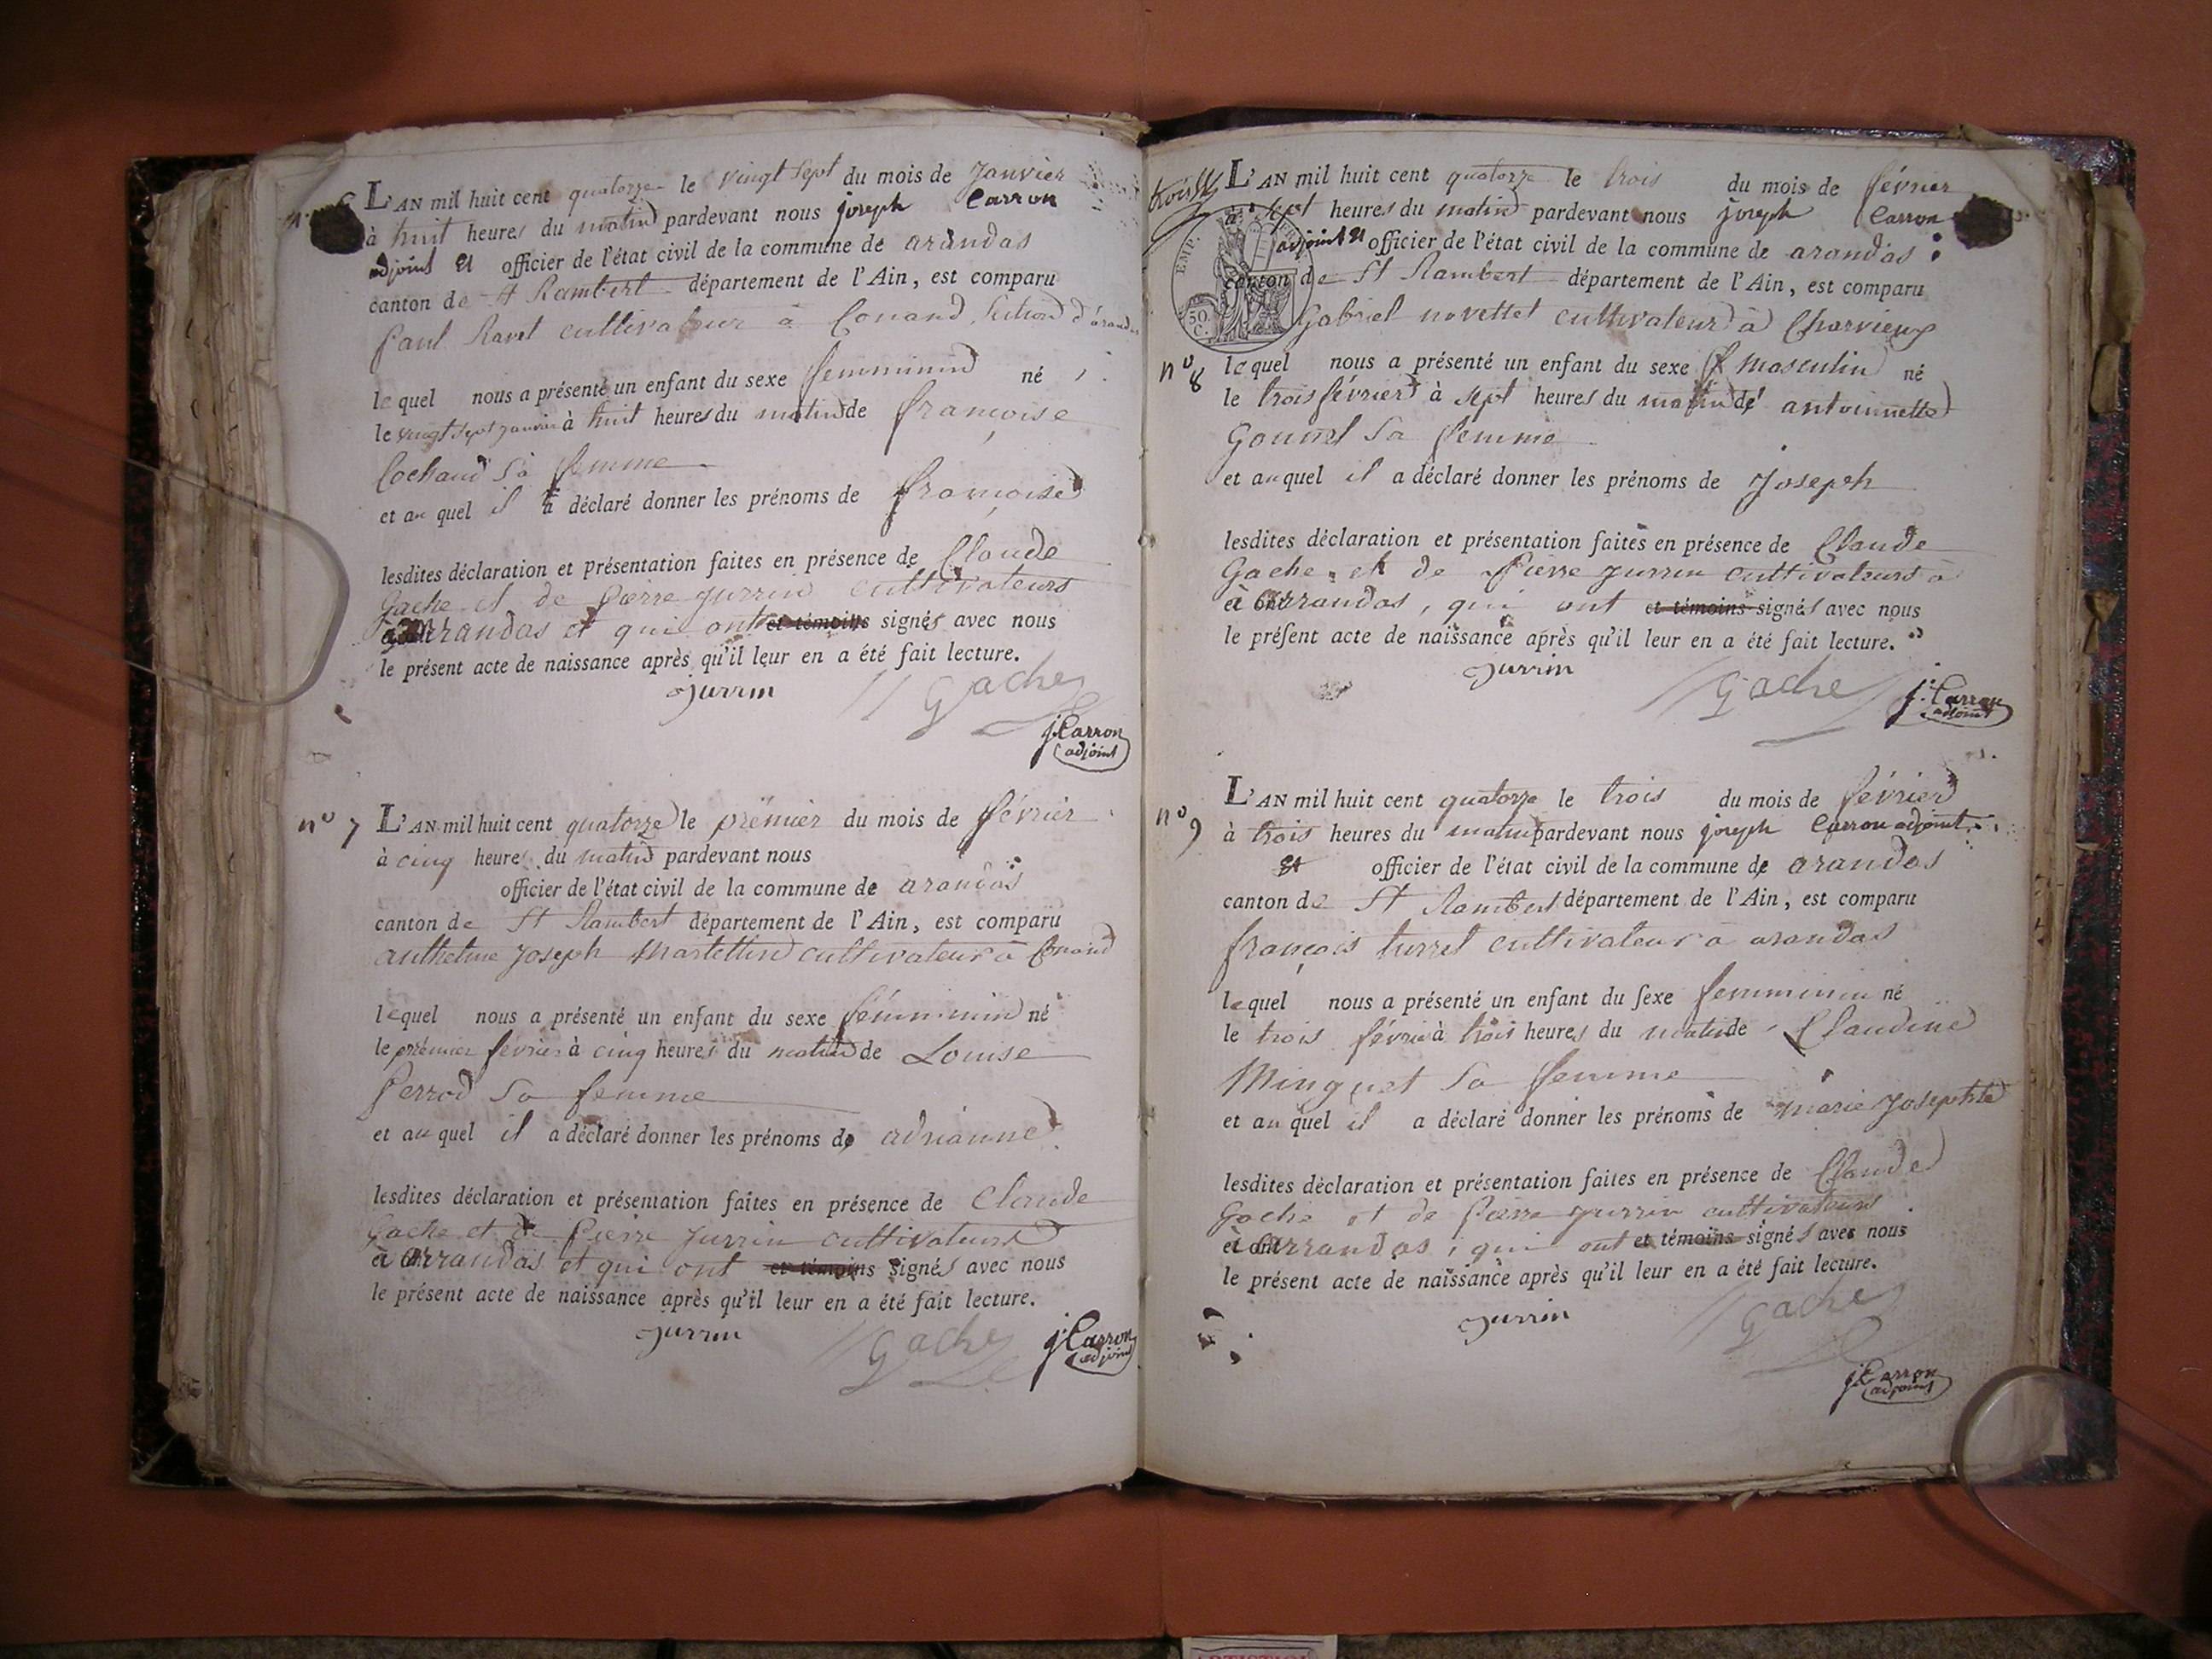 n.° 6
L'AN mil huit cent quatorze le vingt sept du mois de Janvier
à huit heures du matin pardevant nous joseph Carron
adjoint et officier de l'état civil de la commune de arandas
canton de St Rambert département de l'Ain, est comparu
paul Ravet cultivateur à Conand Section d'arandas
lequel nous a présenté un enfant du sexe femminin né
le vingt sept janvier à huit heures du matin de françoise
Cochaud Sa femme
et au quel il a déclaré donner les prénoms de françoise
lesdites déclaration et présentation faites en présence de Claude
Gache et de pierre jurrin cultivateurs
à arrandas et qui ont et témoins signés avec nous
le présent acte de naissance après qu'il leur en a été fait lecture.
jurrin Gache
j. Carron
adjoint
n° 7
L'AN mil huit cent quatorze le prémier du mois de février
à cinq heures du matin pardevant nous
officier de l'état civil de la commune de arandas
canton de St Rambert département de l'Ain, est comparu
anthelme Joseph Martellin cultivateur à Conand
lequel nous a présenté un enfant du sexe fémminin né
le prémier fevrier à cinq heures du matin de Louise
perrod Sa femme
et au quel il a déclaré donner les prénoms de adrianne
lesdites déclaration et présentation faites en présence de Claude
Gache et de pierre Jurrin cultivateurs
à arrandas et qui ont et témoins signés avec nous
le présent acte de naissance après qu'il leur en a été fait lecture.
jurrin Gache j. Carron
adjoint
L'AN mil huit cent quatorze le trois du mois de février
à sept heures du matin pardevant nous joseph Carron
adjoint et officier de l'état civil de la commune de arandas
canton de St Rambert département de l'Ain, est comparu
EMP.
50
C.
Gabriel novettet cultivateur à Charvieux
n° 8
lequel nous a présenté un enfant du sexe masculin né
le trois février à sept heures du matin de antoinnette
Gonnet Sa femme
et au quel il a déclaré donner les prénoms de Joseph
lesdites déclaration et présentation faites en présence de Claude
Gache et de Pierre jurrin cultivateurs à
arrandas, qui ont et témoins signés avec nous
le présent acte de naissance après qu'il leur en a été fait lecture.
jurrin Gache j. Carron
adjoint
n° 9
L'AN mil huit cent quatorze le trois du mois de février
à trois heures du matin pardevant nous joseph Carron adjoint
et officier de l'état civil de la commune de arandas
canton de St Rambert département de l'Ain, est comparu
françois turrel cultivateur à arandas
lequel nous a présenté un enfant du sexe femminin né
le trois février à trois heures du matin de Claudine
Minguet Sa femme
et au quel il a déclaré donner les prénoms de marie Josephte
lesdites déclaration et présentation faites en présence de Claude
Gache et de pierre jurrin cultivateurs
à arrandas, qui ont et témoins signés avec nous
le présent acte de naissance après qu'il leur en a été fait lecture.
jurrin Gache
j. Carron
adjoint